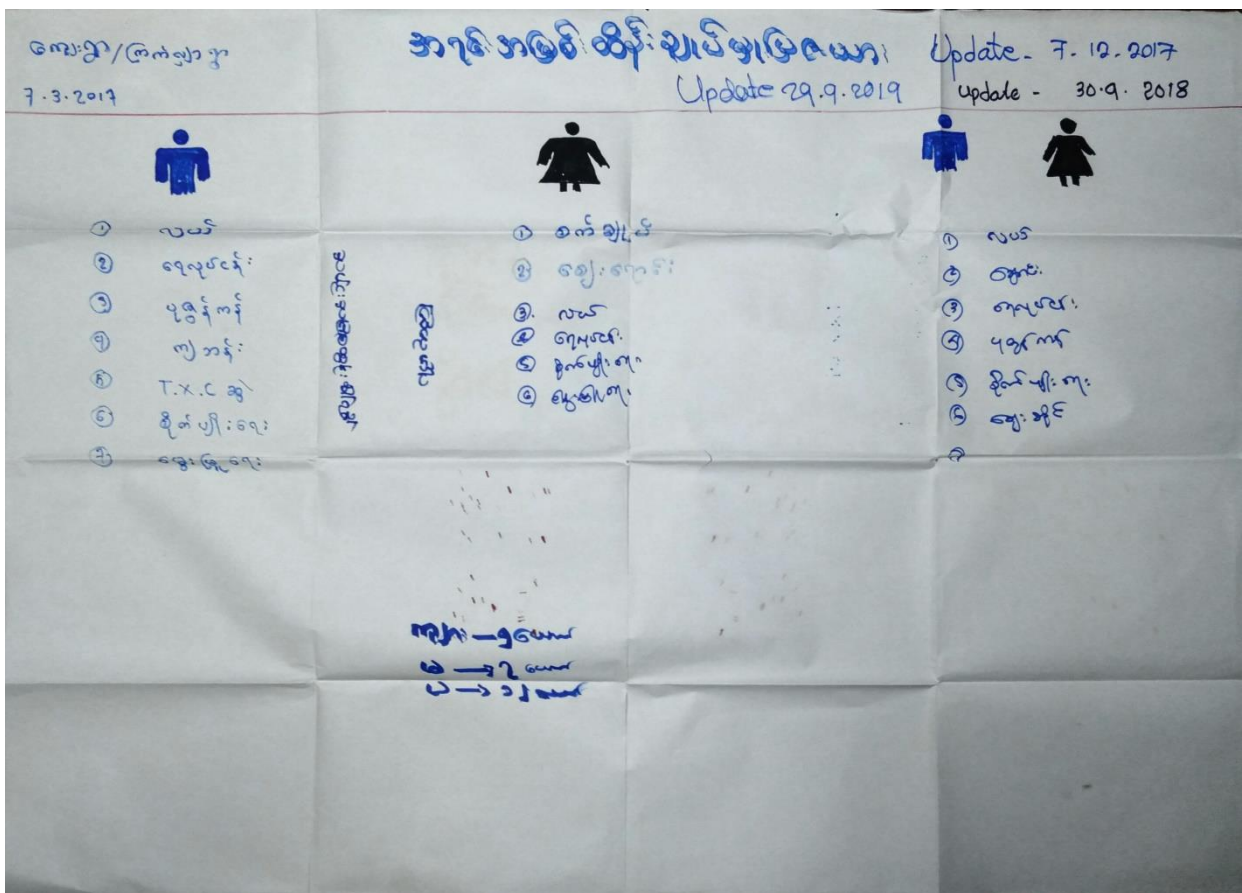 ကျေးရွာ/ကြက်ဖျာရွာ
7.3.2017
အရင်းအမြစ် ထိန်းချုပ်မှုပြဇယား
Update - 7.12.2017
Update 29.9.2019
update - 30.9.2018
① လယ်
② ရေလုပ်ငန်း
③ ပုဇွန်ကန်
④ ကျွဲဘန်း
⑤ T.X.C ဆွဲ
⑥ စိုက်ပျိုးရေး
⑦ မွေးမြူရေး
① စက်ချုပ်
② ဈေးရောင်း
③ လယ်
④ ရေလုပ်ငန်း
⑤ စိုက်ပျိုးရေး
⑥ မွေးမြူရေး
① လယ်
②
③ ရေလုပ်ငန်း
④ ပုဇွန်ကန်
⑤ စိုက်ပျိုးရေး
⑥ ဈေးဆိုင်
⑦
ကျား — ၅ယောက်
မ → ၃ ယောက်